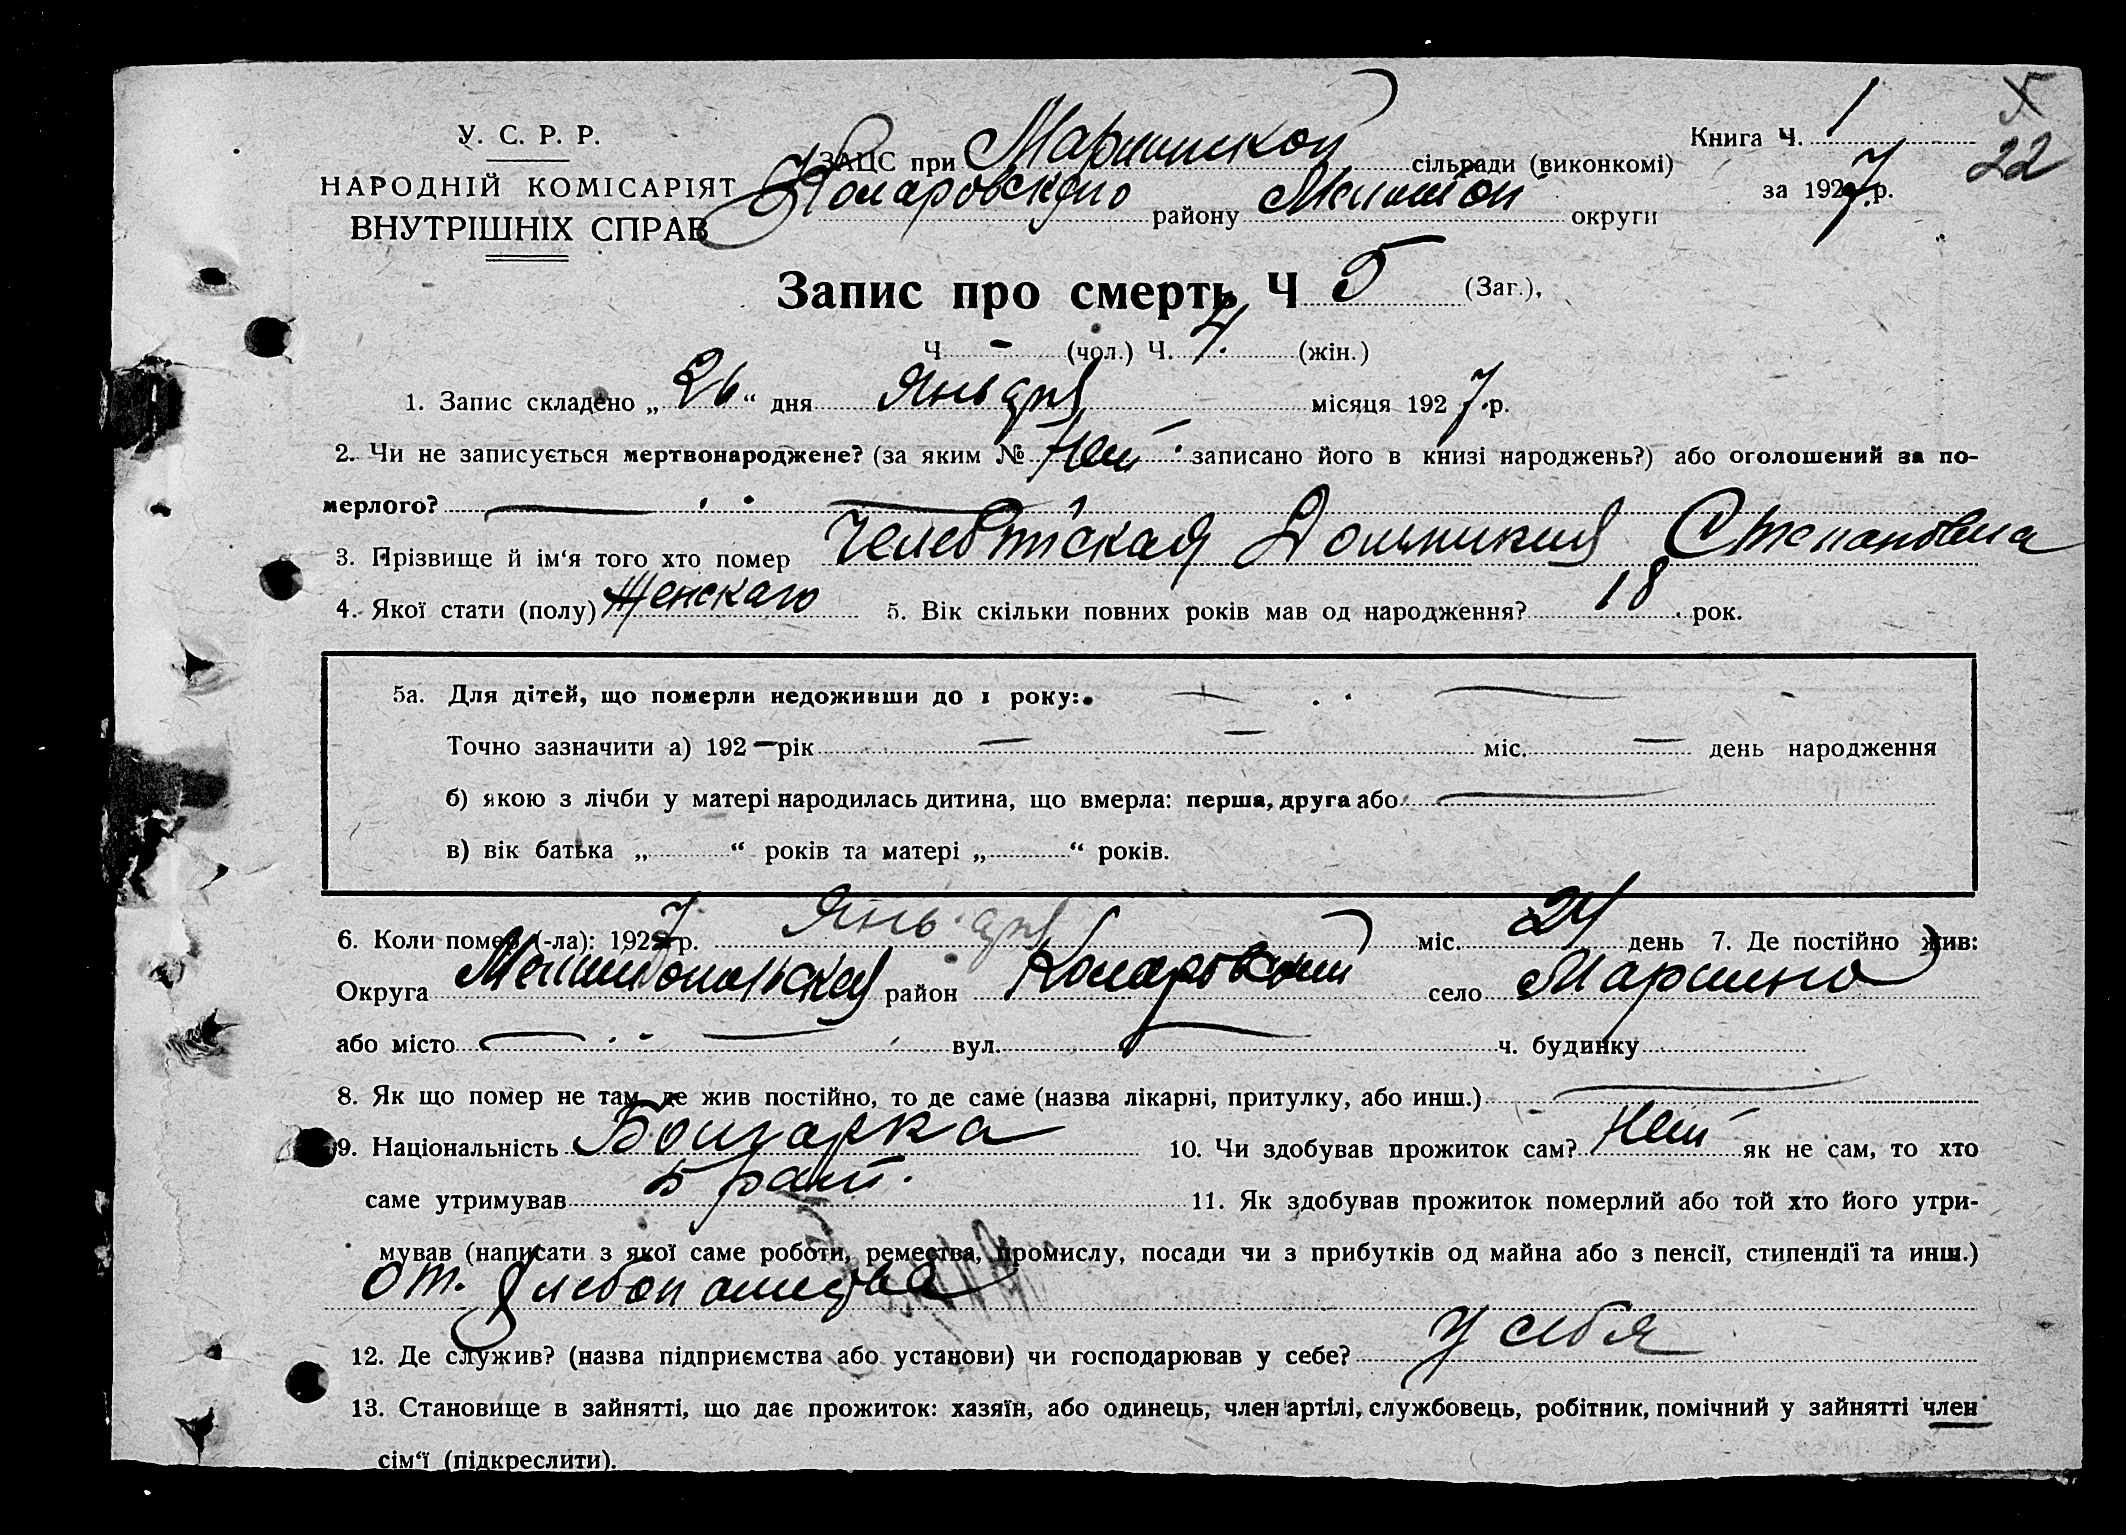 У. С. Р. Р.
НАРОДНІЙ КОМІСАРІЯТ
ВНУТРІШНІХ СПРАВ
ЗАЦС при сільради (виконкомі)
Комаровского району округи
Книга Ч. 1
за 1927 р.
22
Запис про смерть Ч 5 (Заг.),
Ч - (чол.) Ч. 4. (жін.)
1. Запис складено „ 26 “ дня Января місяця 1927 р.
2. Чи не записується мертвонароджене? (за яким № Нет записано його в книзі народжень?) або оголошений за по-
мерлого?
3. Прізвище й ім‘я того хто помер Степановна
4. Якої стати (полу) Женскаго 5. Вік скільки повних років мав од народження? 18 рок.
5а. Для дітей, що померли недоживши до 1 року:
Точно зазначити а) 192 — рік — — міс. — день народження
б) якою з лічби у матері народилась дитина, що вмерла: перша, друга або —
в) вік батька „ “ років та матері „ “ років.
6. Коли помер (-ла): 1927 р. Января міс. 24 день 7. Де постійно жив:
Округа район Комаровский село Марьино
або місто вул. ч. будинку
8. Як що помер не там, де жив постійно, то де саме (назва лікарні, притулку, або инш.)
9. Національність Болгарка 10. Чи здобував прожиток сам? Нет як не сам, то хто
саме утримував Брат. 11. Як здобував прожиток померлий або той хто його утри-
мував (написати з якої саме роботи, ремества, промислу, посади чи з прибутків од майна або з пенсії, стипендії та инш.)
От. хлебопашества
12. Де служив? (назва підприємства або установи) чи господарював у себе? У себя
13. Становище в зайнятті, що дає прожиток: хазяїн, або одинець, член артілі, службовець, робітник, помічний у зайнятті член
сім‘ї (підкреслити).